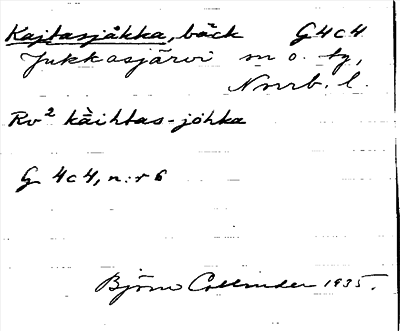 Kajtasjåkka, bäck G4c4
Jukkasjärvi sn o. tg,
Nnrrb. l.
Rv² kàihtas-jåhka
G 4c4, n:r 6
Björn Collinder 1935.